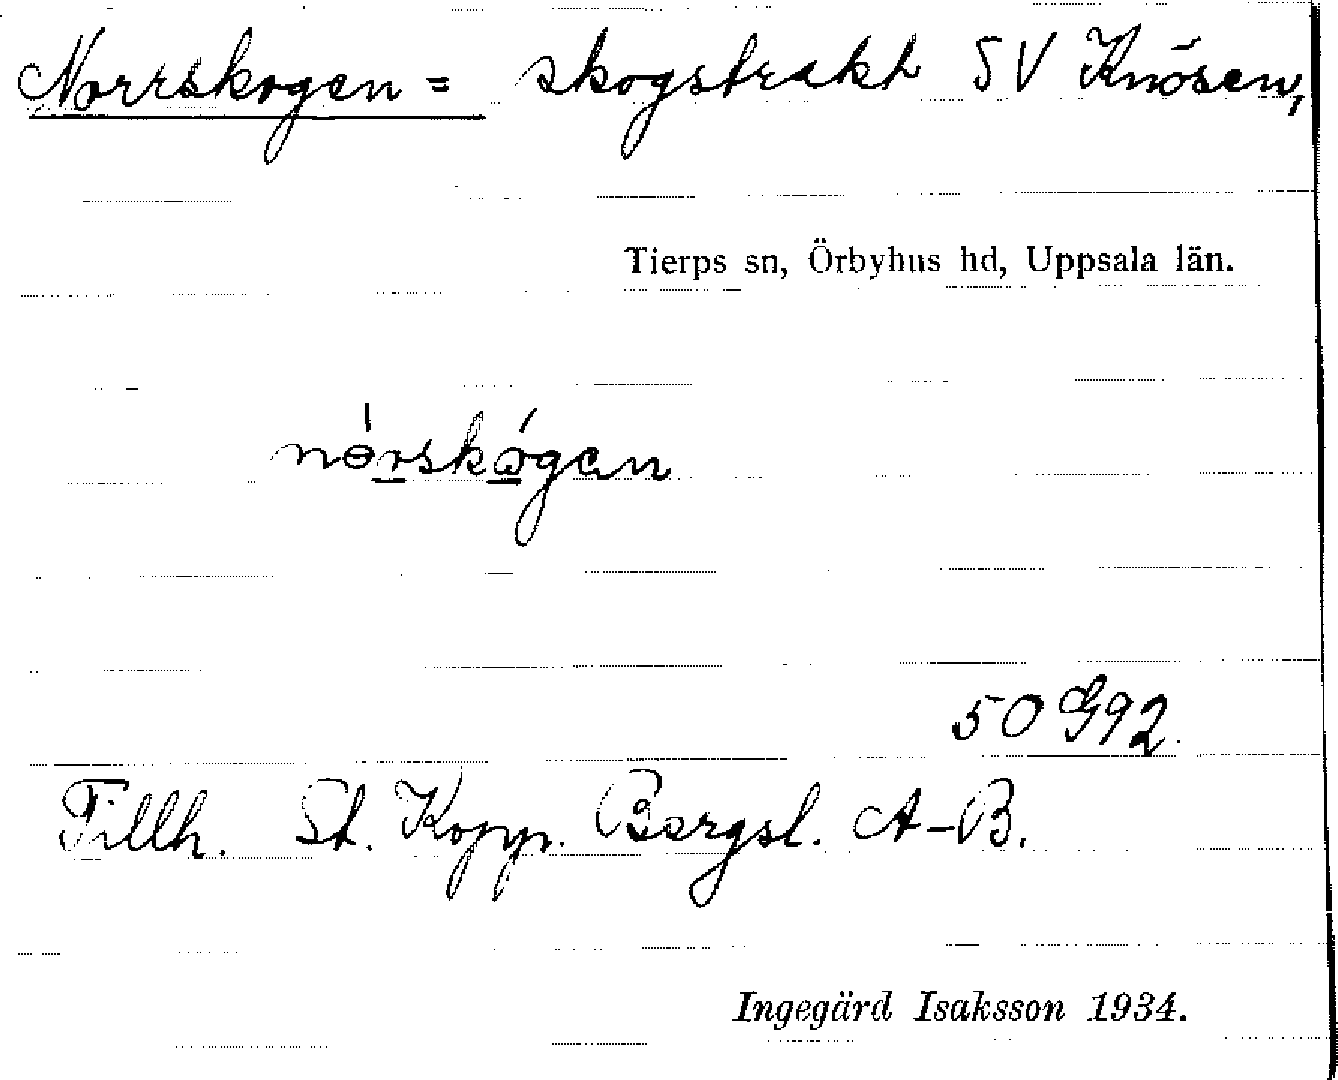 Norrskogen = skogstrakt SV Knösen,
Tierps sn, Örbyhus hd, Uppsala län.
nɵ́rskǫ́gen
50 G92.
Tillh. St. Kopp. Bergsl. A-B.
Ingegärd Isaksson 1934.